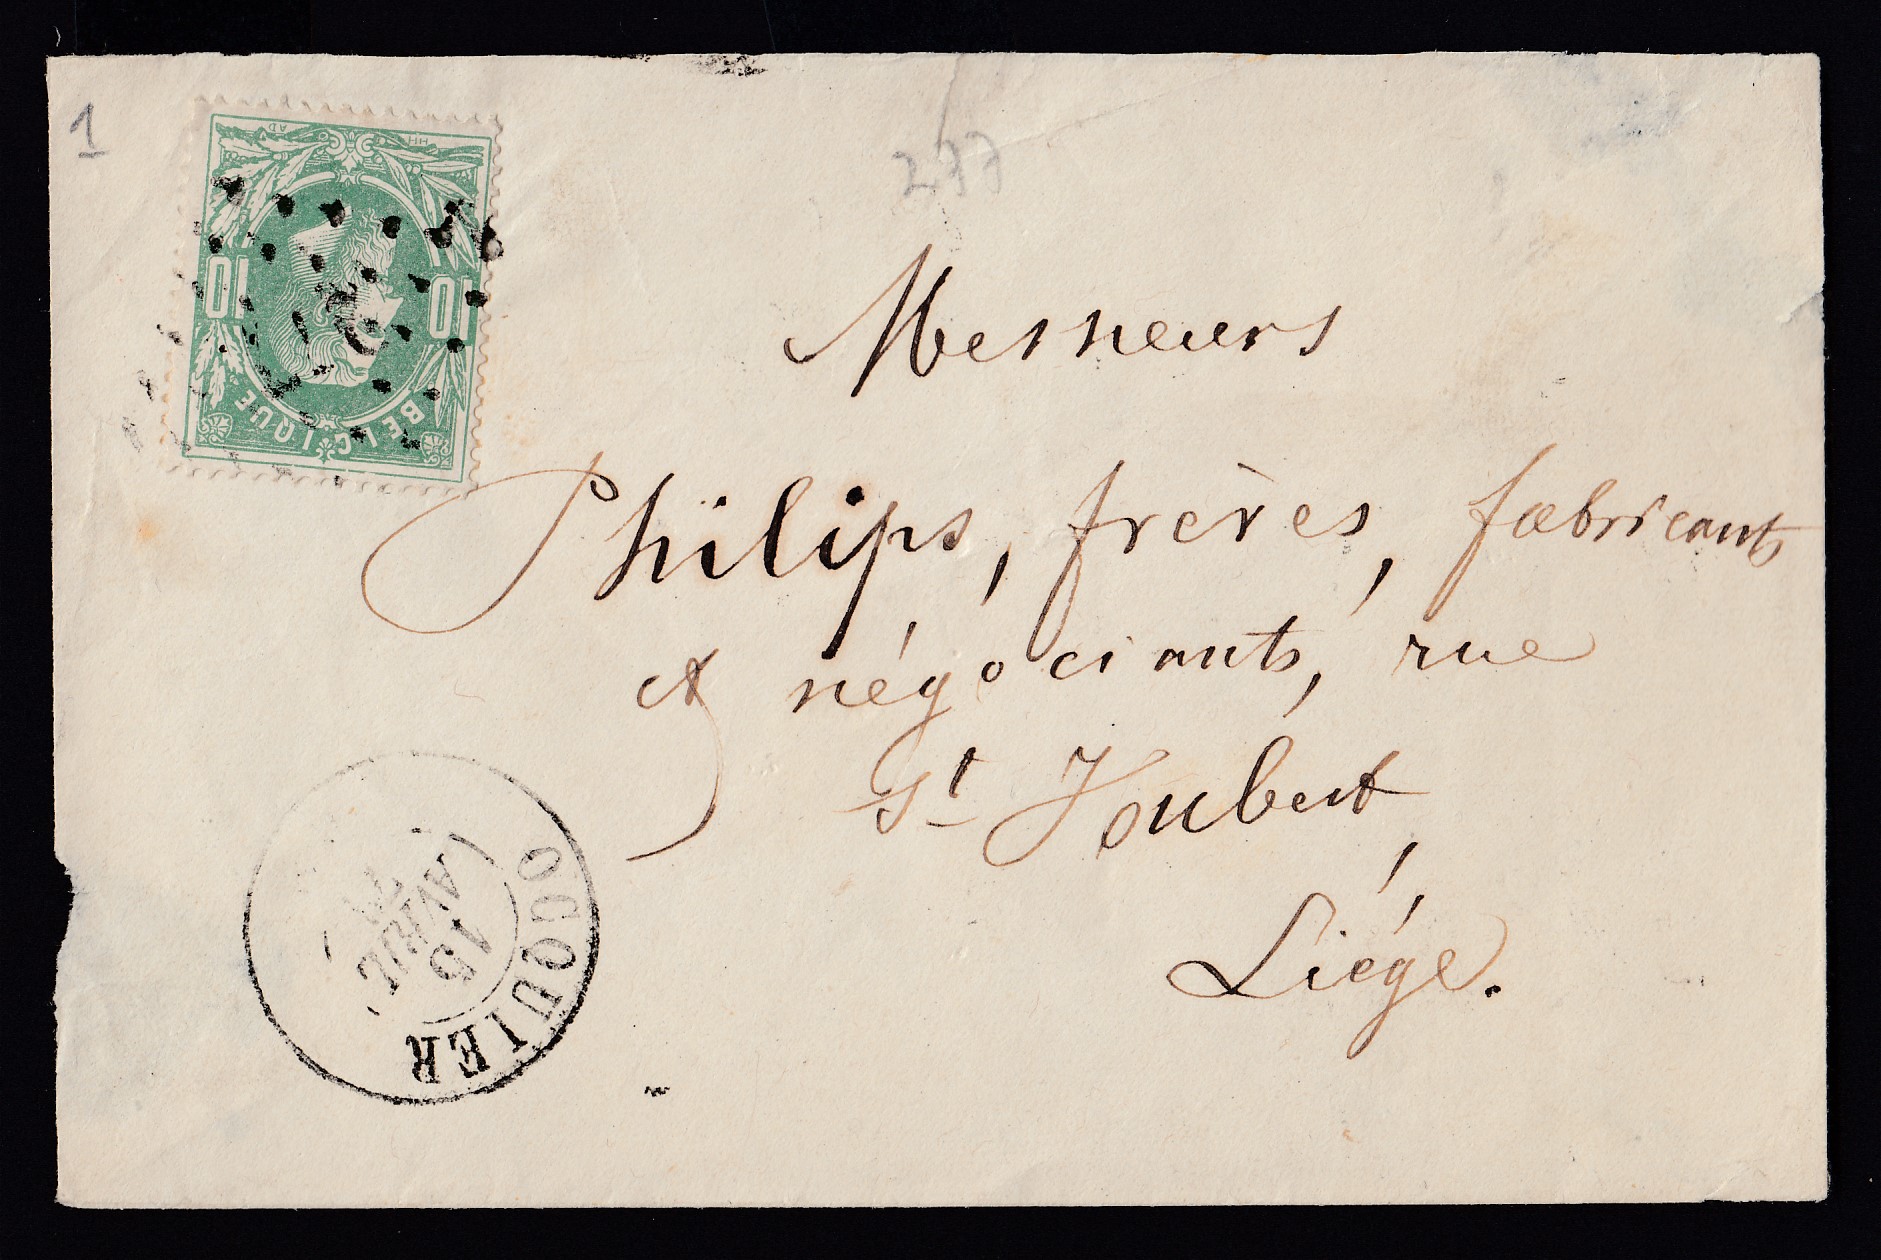 1
277
10 10
BELGIQUE
Messieurs
Philips, frères, fabricants
et négociants, rue
St Houbert,
Liége.
OCQUIER
15
AVRIL